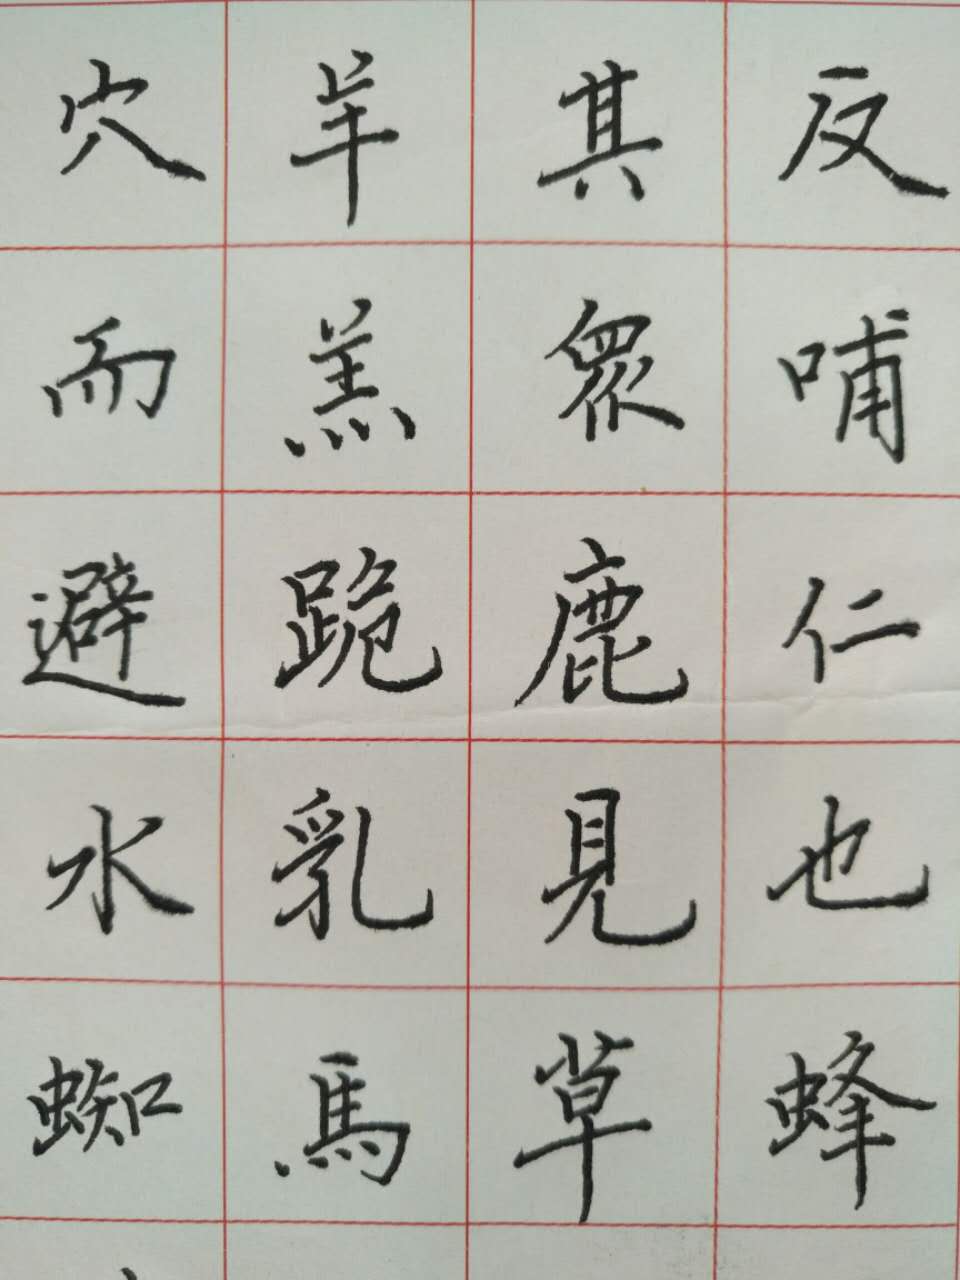 反哺仁也蜂
其眾鹿見草
羊羔跪乳馬
穴而避水蜘